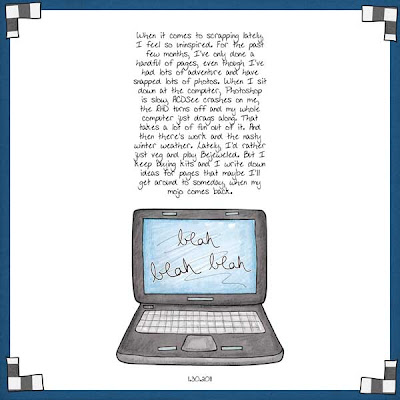 When it comes to scrapping lately,
I feel so uninspired. For the past
few months, I've only done a
handful of pages, even though I've
had lots of adventure and have
snapped lots of photos. When I sit
down at the computer, Photoshop
is slow, ACDSee crashes on me,
the EHD turns off and my whole
computer just drags along. That
takes a lot of fun out of it. And
then there's work and the nasty
winter weather. Lately, I'd rather
just veg and play Bejeweled. But I
keep buying kits and I write down
ideas for pages that maybe I'll
get around to someday, when my
mojo comes back.
blah
blah blah
1.30.2011